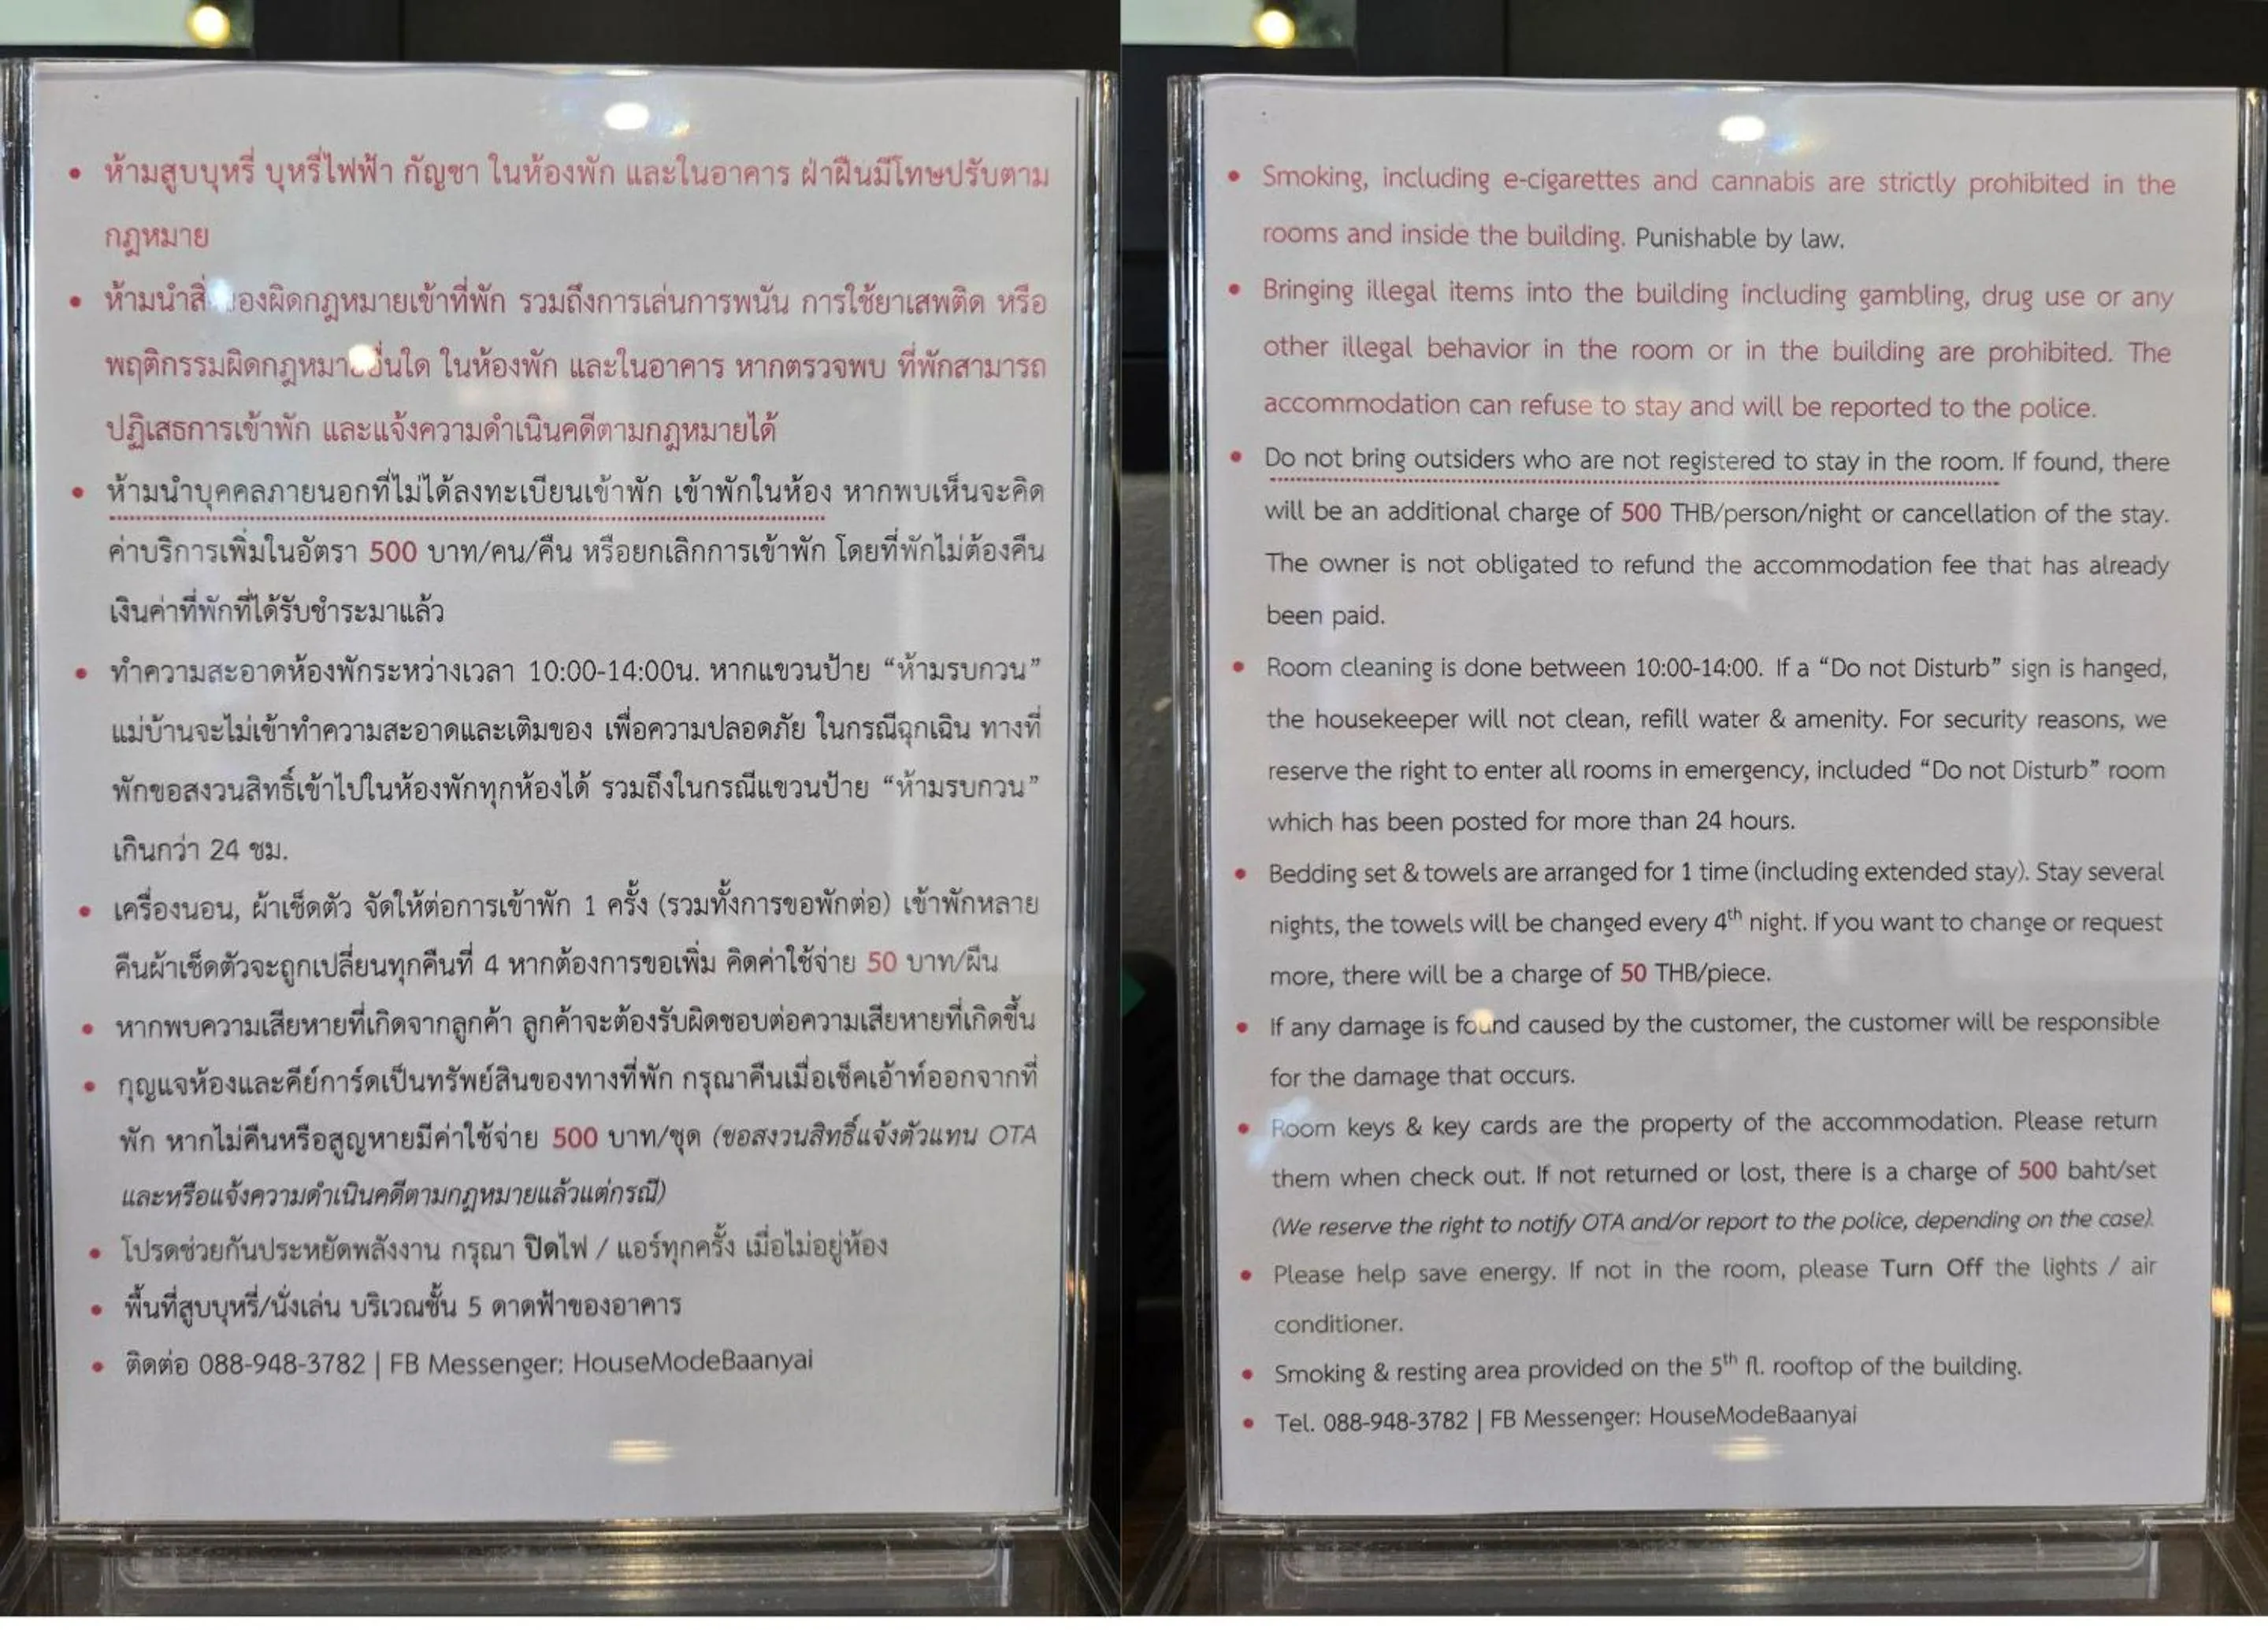 • ห้ามสูบบุหรี่ บุหรี่ไฟฟ้า กัญชา ในห้องพัก และในอาคาร ฝ่าฝืนมีโทษปรับตาม
กฎหมาย
• ห้ามนำสิ่งของผิดกฎหมายเข้าที่พัก รวมถึงการเล่นการพนัน การใช้ยาเสพติด หรือ
พฤติกรรมผิดกฎหมายอื่นใด ในห้องพัก และในอาคาร หากตรวจพบ ที่พักสามารถ
ปฏิเสธการเข้าพัก และแจ้งความดำเนินคดีตามกฎหมายได้
• ห้ามนำบุคคลภายนอกที่ไม่ได้ลงทะเบียนเข้าพัก เข้าพักในห้อง หากพบเห็นจะคิด
ค่าบริการเพิ่มในอัตรา 500 บาท/คน/คืน หรือยกเลิกการเข้าพัก โดยที่พักไม่ต้องคืน
เงินค่าที่พักที่ได้รับชำระมาแล้ว
• ทำความสะอาดห้องพักระหว่างเวลา 10:00-14:00น. หากแขวนป้าย “ห้ามรบกวน”
แม่บ้านจะไม่เข้าทำความสะอาดและเติมของ เพื่อความปลอดภัย ในกรณีฉุกเฉิน ทางที่
พักขอสงวนสิทธิ์เข้าไปในห้องพักทุกห้องได้ รวมถึงในกรณีแขวนป้าย “ห้ามรบกวน”
เกินกว่า 24 ชม.
• เครื่องนอน, ผ้าเช็ดตัว จัดให้ต่อการเข้าพัก 1 ครั้ง (รวมทั้งการขอพักต่อ) เข้าพักหลาย
คืนผ้าเช็ดตัวจะถูกเปลี่ยนทุกคืนที่ 4 หากต้องการขอเพิ่ม คิดค่าใช้จ่าย 50 บาท/ผืน
• หากพบความเสียหายที่เกิดจากลูกค้า ลูกค้าจะต้องรับผิดชอบต่อความเสียหายที่เกิดขึ้น
• กุญแจห้องและคีย์การ์ดเป็นทรัพย์สินของทางที่พัก กรุณาคืนเมื่อเช็คเอ้าท์ออกจากที่
พัก หากไม่คืนหรือสูญหายมีค่าใช้จ่าย 500 บาท/ชุด (ขอสงวนสิทธิ์แจ้งตัวแทน OTA
และหรือแจ้งความดำเนินคดีตามกฎหมายแล้วแต่กรณี)
• โปรดช่วยกันประหยัดพลังงาน กรุณา ปิดไฟ / แอร์ทุกครั้ง เมื่อไม่อยู่ห้อง
• พื้นที่สูบบุหรี่/นั่งเล่น บริเวณชั้น 5 ดาดฟ้าของอาคาร
• ติดต่อ 088-948-3782 | FB Messenger: HouseModeBaanyai
• Smoking, including e-cigarettes and cannabis are strictly prohibited in the
rooms and inside the building. Punishable by law.
• Bringing illegal items into the building including gambling, drug use or any
other illegal behavior in the room or in the building are prohibited. The
accommodation can refuse to stay and will be reported to the police.
• Do not bring outsiders who are not registered to stay in the room. If found, there
will be an additional charge of 500 THB/person/night or cancellation of the stay.
The owner is not obligated to refund the accommodation fee that has already
been paid.
• Room cleaning is done between 10:00-14:00. If a “Do not Disturb” sign is hanged,
the housekeeper will not clean, refill water & amenity. For security reasons, we
reserve the right to enter all rooms in emergency, included “Do not Disturb” room
which has been posted for more than 24 hours.
• Bedding set & towels are arranged for 1 time (including extended stay). Stay several
nights, the towels will be changed every 4th night. If you want to change or request
more, there will be a charge of 50 THB/piece.
• If any damage is found caused by the customer, the customer will be responsible
for the damage that occurs.
• Room keys & key cards are the property of the accommodation. Please return
them when check out. If not returned or lost, there is a charge of 500 baht/set
(We reserve the right to notify OTA and/or report to the police, depending on the case).
• Please help save energy. If not in the room, please Turn Off the lights / air
conditioner.
• Smoking & resting area provided on the 5th fl. rooftop of the building.
• Tel. 088-948-3782 | FB Messenger: HouseModeBaanyai